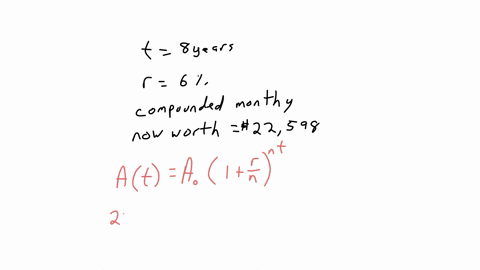 t = 8 years
r = 6%
compounded monthy
now worth = $22,598
A(t) = A₀ (1 + r/n)^nt
2